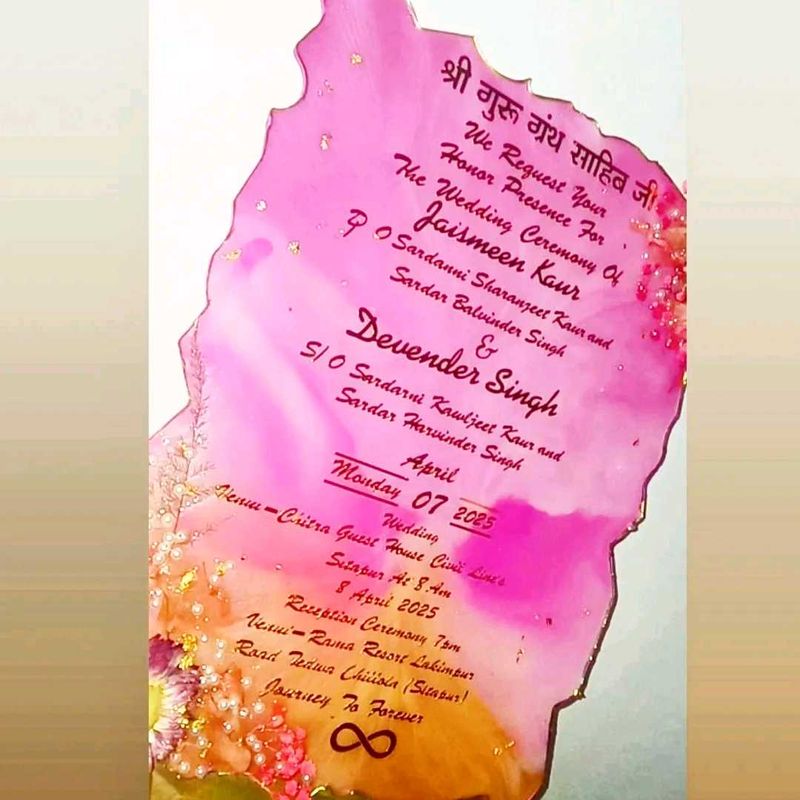 श्री गुरू ग्रंथ साहिब जी
We Request Your
Honor Presence For
The Wedding Ceremony Of
Jaismeen Kaur
D O Sardanni Sharanjeet Kaur and
Sardar Balvinder Singh
&
Devender Singh
S/O Sardarni Kawljeet Kaur and
Sardar Harvinder Singh
April
Monday 07 2025
Wedding
Venue-Chitra Guest House Civil Line's
Sitapur At 8 Am
8 April 2025
Reception Ceremony 7pm
Venue-Rama Resort Lakimpur
Road Tedwa (Sitapur)
Journey To Forever